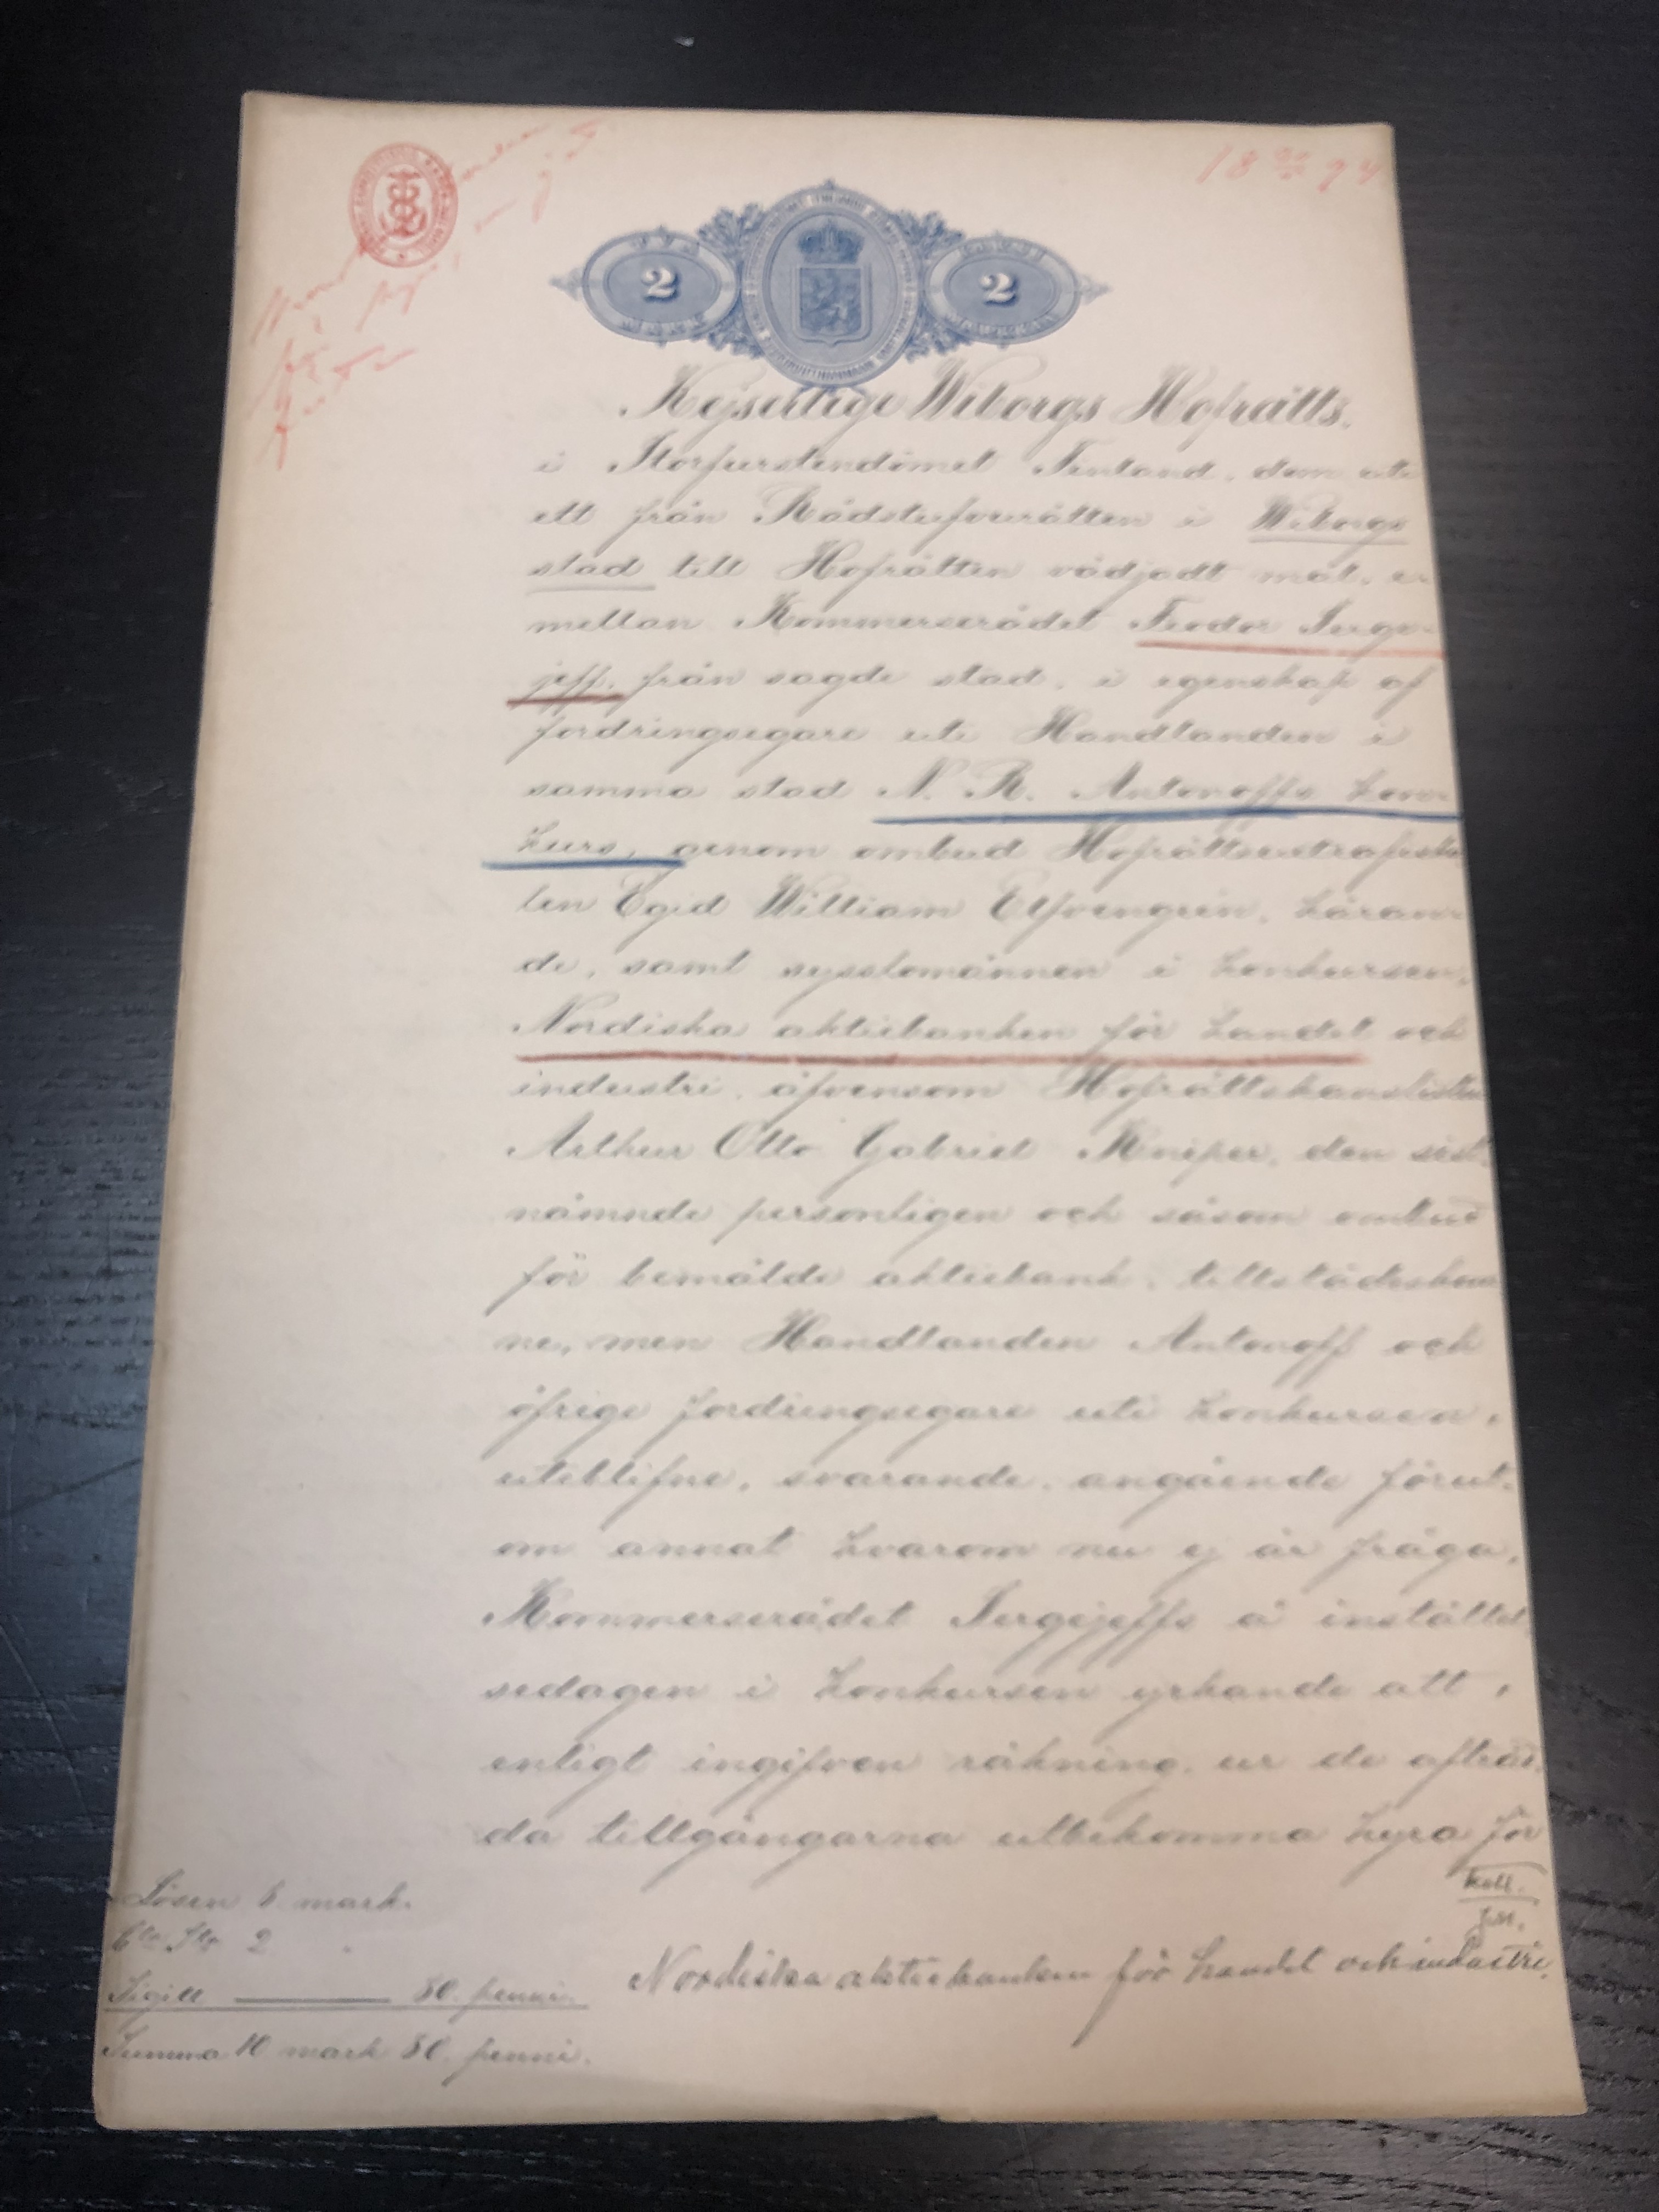 2 2
Kejserlige Wiborgs Hofrätts
i Storfurstendömet Finland, dom uti
ett från Rådstufvurätten i Wiborgs
stad till Hofrätten vädjadt mål, er
mellan Kommerserådet Feodor Serge-
jeff, från sagde stad, i egenskap af
fordringsegare uti Handlanden i
samma stad N. R. Antonoffs kon-
kurs, genom ombud Hofrättsextrafiska-
len Egid William Elfvengren, käran-
de, samt sysslomännen i konkursen,
Nordiska aktiebanken för handel och
industri, äfvensom Hofrättskanslisten
Arthur Otto Gabriel Kniper, den sist-
nämnde personligen och såsom ombud
för bemälde aktiebank, tillstädeskom-
ne, men Handlanden Antonoff och
öfrige fordringsegare uti konkursen,
uteblifne, svarande, angående förut-
om annat hvarom nu ej är fråga,
Kommerserådet Sergejeffs å inställel-
sedagen i konkursen yrkande att,
enligt ingifven räkning, ur de afträd-
da tillgångarna utbekomma hyra för
Koll.
Lösen 8 mark.
2
Sigill 80. penni.
Summa 10 mark 80. penni.
Nordiska aktiebanken för handel och industri.